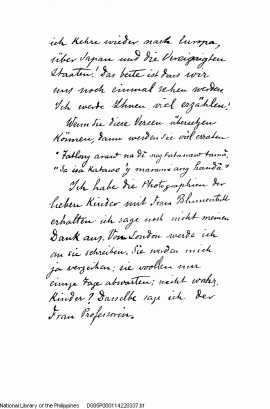 ich kehre wieder nach Europa,
über Japan und die Vereinigten
Staaten! Das beste ist dass wir
uns noch einmal sehen werden
Ich werde Ihnen viel erzählen!
Wenn Sie diese Versen
können, dann werden Sie viel erraten
Ich habe die Photographien der
lieben Kinder mit Frau Blumentritt
erhalten ich sage noch nicht meinen
Dank aus. Von London werde ich
an sie schreiben. Sie werden mich
ja verzeihen; sie wollen nur
einige Tage abwarten; nicht wahr,
Kinder? Dasselbe sage ich der
Frau Professorin.
National Library of the Philippines